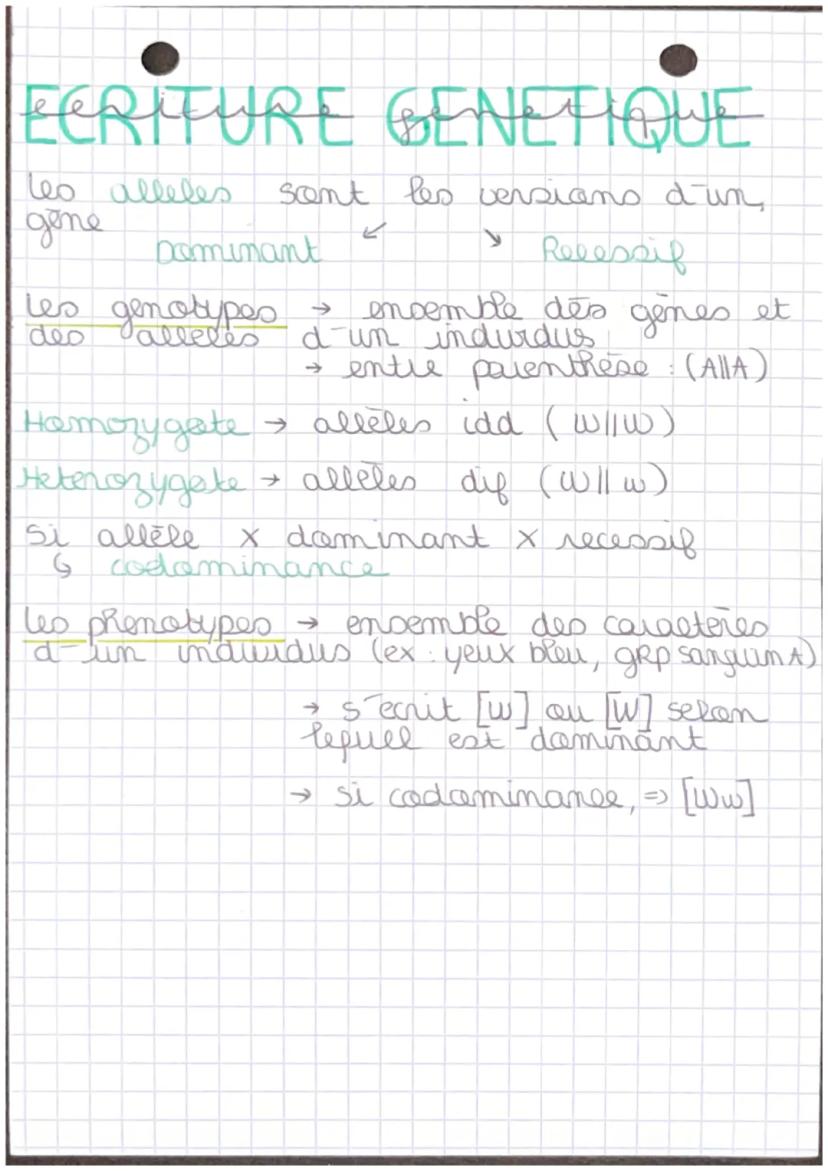 ECRITURE GENETIQUE
ecriture genetique
les alleles sont les versions d'un
gène
Dominant ↙ ↘ Recessif
les genotypes → ensemble des gènes et
des alleles d'un individus
→ entre parenthèse : (A||A)
Homozygote → allèles idd (W||W)
Heterozygote → allèles dif (W||w)
si allèle x dominant x recessif
↳ codominance
les phenotypes → ensemble des caractères
d'un individus (ex : yeux bleu, grp sanguin A)
→ s'ecrit [w] ou [W] selon
lequel est dominant
→ si codominance, => [Ww]